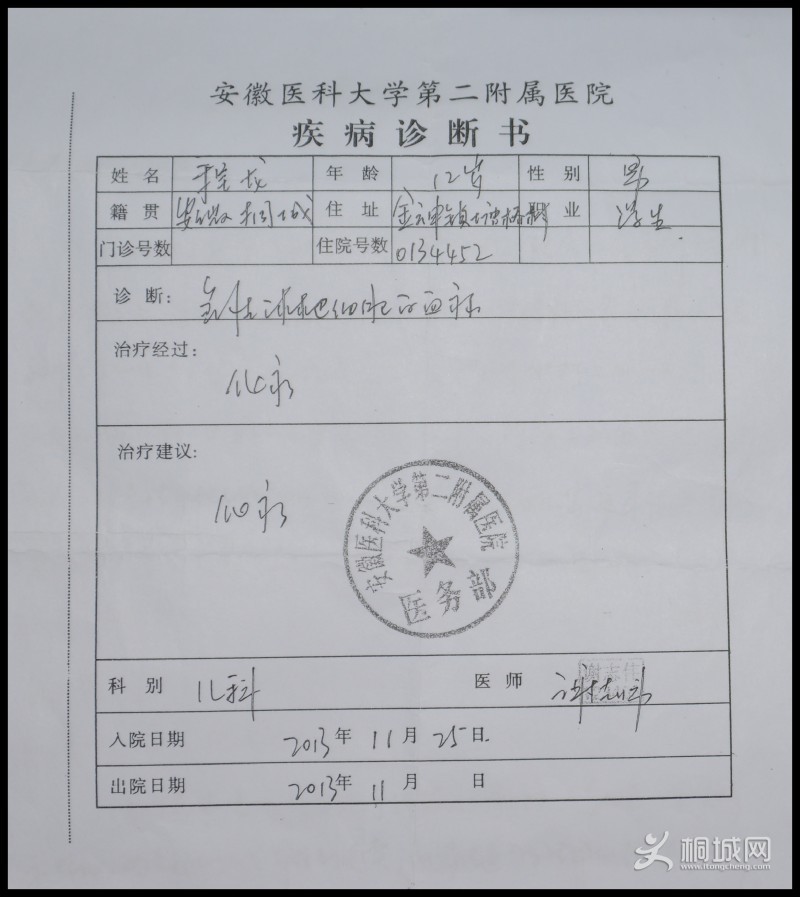 安徽医科大学第二附属医院
疾病诊断书
姓名 程龙 年龄 12岁 性别 男
籍贯 安徽桐城 住址 职业 学生
门诊号数 住院号数 0134452
诊断: 急性淋巴细胞白血病
治疗经过:
化疗
治疗建议:
化疗
安徽医科大学第二附属医院
医务部
科别 儿科 医师 谢志伟
谢志伟
入院日期 2013年11月25日
出院日期 2013年11月 日
桐城网
www.itongcheng.com